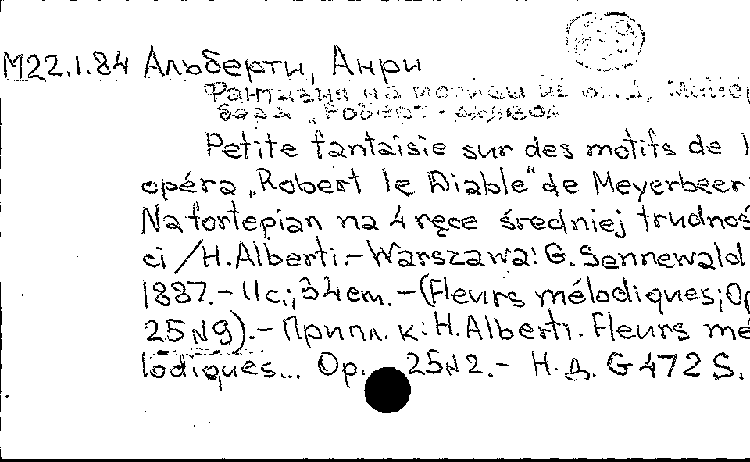 М22.1.84 Альберти, Анри
Фантазия на мотивы из оп. Д. Мейер
бера „Роберт-дьявол
Petite fantaisie sur des motifs de l
opéra „Robert le Diable“ de Meyerbeer
Na fortepian na 4 ręce średniej trudnoś
ci / H. Alberti.- Warszawa: G. Sennewald
1887.- 11 c.; 34 cm. - (Fleurs mélodiques; Op
25 N9).- Припл. к: H. Alberti. Fleurs mé
lodiques... Op. 25 N2.- Н.д. G 472 S.